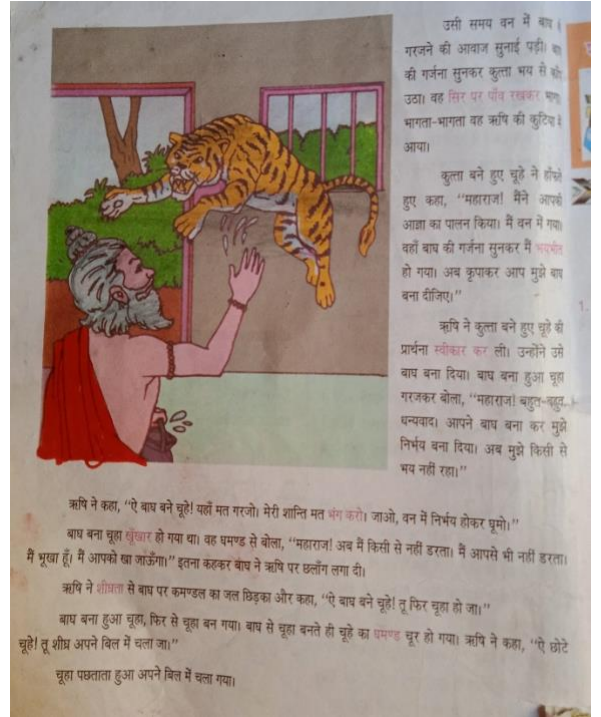 उसी समय वन में बाघ
गरजने की आवाज सुनाई पड़ी।
की गर्जना सुनकर कुत्ता भय से
उठा। वह सिर पर पाँव रखकर भागा
भागता-भागता वह ऋषि की कुटिया में
आया।
कुत्ता बने हुए चूहे ने हाँफते
हुए कहा, “महाराज! मैंने आपकी
आज्ञा का पालन किया। मैं वन में गया
वहाँ बाघ की गर्जना सुनकर मैं भयभीत
हो गया। अब कृपाकर आप मुझे बाघ
बना दीजिए।”
ऋषि ने कुत्ता बने हुए चूहे की
प्रार्थना स्वीकार कर ली। उन्होंने उसे
बाघ बना दिया। बाघ बना हुआ चूहा
गरजकर बोला, “महाराज! बहुत-बहुत
धन्यवाद। आपने बाघ बना कर मुझे
निर्भय बना दिया। अब मुझे किसी से
भय नहीं रहा।”
ऋषि ने कहा, “ऐ बाघ बने चूहे! यहाँ मत गरजो। मेरी शान्ति मत भंग करो। जाओ, वन में निर्भय होकर घूमो।”
बाघ बना चूहा खूँखार हो गया था। वह घमण्ड से बोला, “महाराज! अब मैं किसी से नहीं डरता। मैं आपसे भी नहीं डरता।
मैं भूखा हूँ। मैं आपको खा जाऊँगा।” इतना कहकर बाघ ने ऋषि पर छलाँग लगा दी।
ऋषि ने शीघ्रता से बाघ पर कमण्डल का जल छिड़का और कहा, “ऐ बाघ बने चूहे! तू फिर चूहा हो जा।”
बाघ बना हुआ चूहा, फिर से चूहा बन गया। बाघ से चूहा बनते ही चूहे का घमण्ड चूर हो गया। ऋषि ने कहा, “ऐ छोटे
चूहे! तू शीघ्र अपने बिल में चला जा।”
चूहा पछताता हुआ अपने बिल में चला गया।
1.